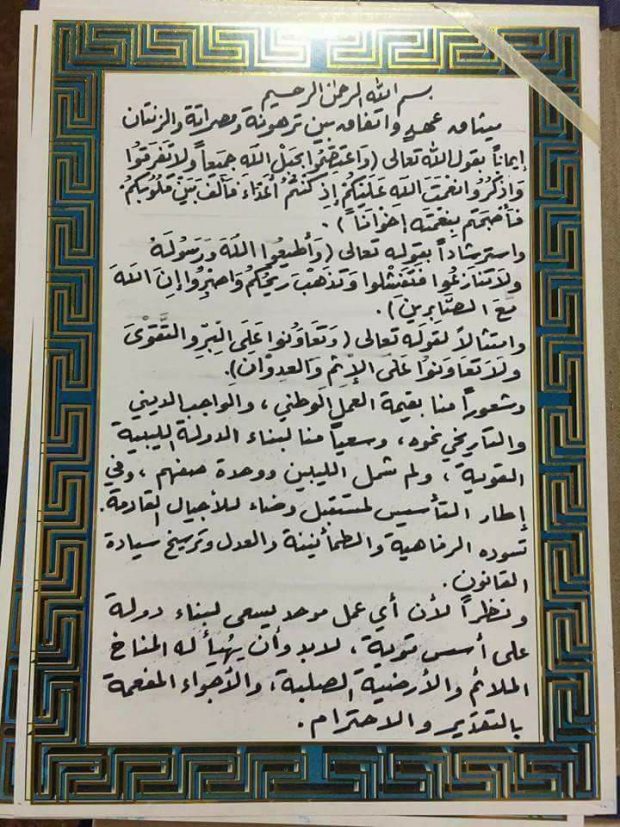 بسم الله الرحمن الرحيم
ميثاق عهد واتفاق بين ترهونة ومصراتة والزنتان
إيماناً بقول الله تعالى (وَاعْتَصِمُوا بِحَبْلِ اللَّهِ جَمِيعاً وَلَا تَفَرَّقُوا
وَاذْكُرُوا نِعْمَتَ اللَّهِ عَلَيْكُمْ إِذْ كُنْتُمْ أَعْدَاءً فَأَلَّفَ بَيْنَ قُلُوبِكُمْ
فَأَصْبَحْتُم بِنِعْمَتِهِ إِخْوَانًا).
واسترشاداً بقوله تعالى (وَأَطِيعُوا اللَّهَ وَرَسُولَهُ
وَلَا تَنَازَعُوا فَتَفْشَلُوا وَتَذْهَبَ رِيحُكُمْ وَاصْبِرُوا إِنَّ اللَّهَ
مَعَ الصَّابِرِينَ).
وامتثالاً لقوله تعالى (وَتَعَاوَنُوا عَلَى الْبِرِّ وَالتَّقْوَىٰ
وَلَا تَعَاوَنُوا عَلَى الْإِثْمِ وَالْعُدْوَانِ).
وشعوراً منا بقيمة العمل الوطني، والواجب الديني
والتاريخي نحوه، وسعياً منا لبناء الدولة الليبية
القوية، ولم شمل الليبين ووحدة صفهم، وفي
إطار التأسيس لمستقبل وضاء للأجيال القادمة.
تسوده الرفاهية والطمأنينة والعدل وترسيخ سيادة
القانون.
ونظراً لأن أي عمل موحد يسعى لبناء دولة
على أسس قوية، لابد وأن يُهيأ له المناخ
الملائم والأرضية الصلبة، والأجواء المفعمة
بالتقدير والاحترام.